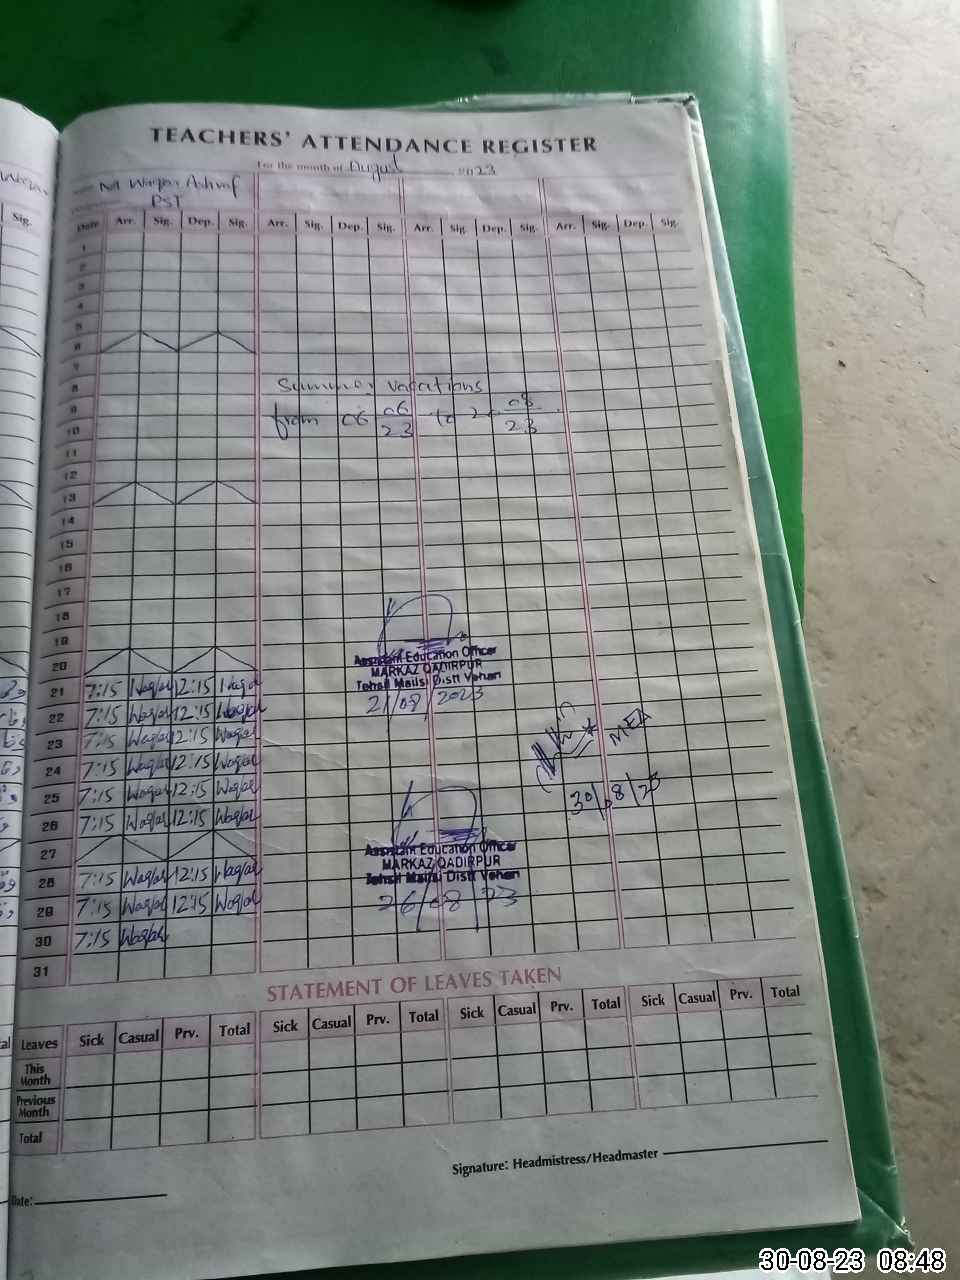 TEACHERS' ATTENDANCE REGISTER
For the month of August 2023
M Waqar Ashraf
PST
Date Arr. Sig. Dep. Sig. Arr. Sig. Dep. Sig. Arr. Sig. Dep. Sig. Arr. Sig. Dep. Sig.
Sig.
1
2
3
4
5
6
7
8
Summer vacations
9
from 06 06/23 to 20 08/23
10
11
12
13
14
15
16
17
18
19
20
Assistant Education Officer
MARKAZ QADIRPUR
Tehsil Mailsi Distt Vehari
21/08/2023
21 7:15 Waqar 12:15 Waqar
22 7:15 Waqar 12:15 Waqar
23 7:15 Waqar 12:15 Waqar
24 7:15 Waqar 12:15 Waqar
25 7:15 Waqar 12:15 Waqar
26 7:15 Waqar 12:15 Waqar
MEA
30/8/23
27
Assistant Education Officer
MARKAZ QADIRPUR
Tehsil Mailsi Distt Vehari
26/08/23
28 7:15 Waqar 12:15 Waqar
29 7:15 Waqar 12:15 Waqar
30 7:15 Waqar
31
STATEMENT OF LEAVES TAKEN
Leaves Sick Casual Prv. Total Sick Casual Prv. Total Sick Casual Prv. Total Sick Casual Prv. Total
This
Month
Previous
Month
Total
Signature: Headmistress/Headmaster
Date:
30-08-23 08:48